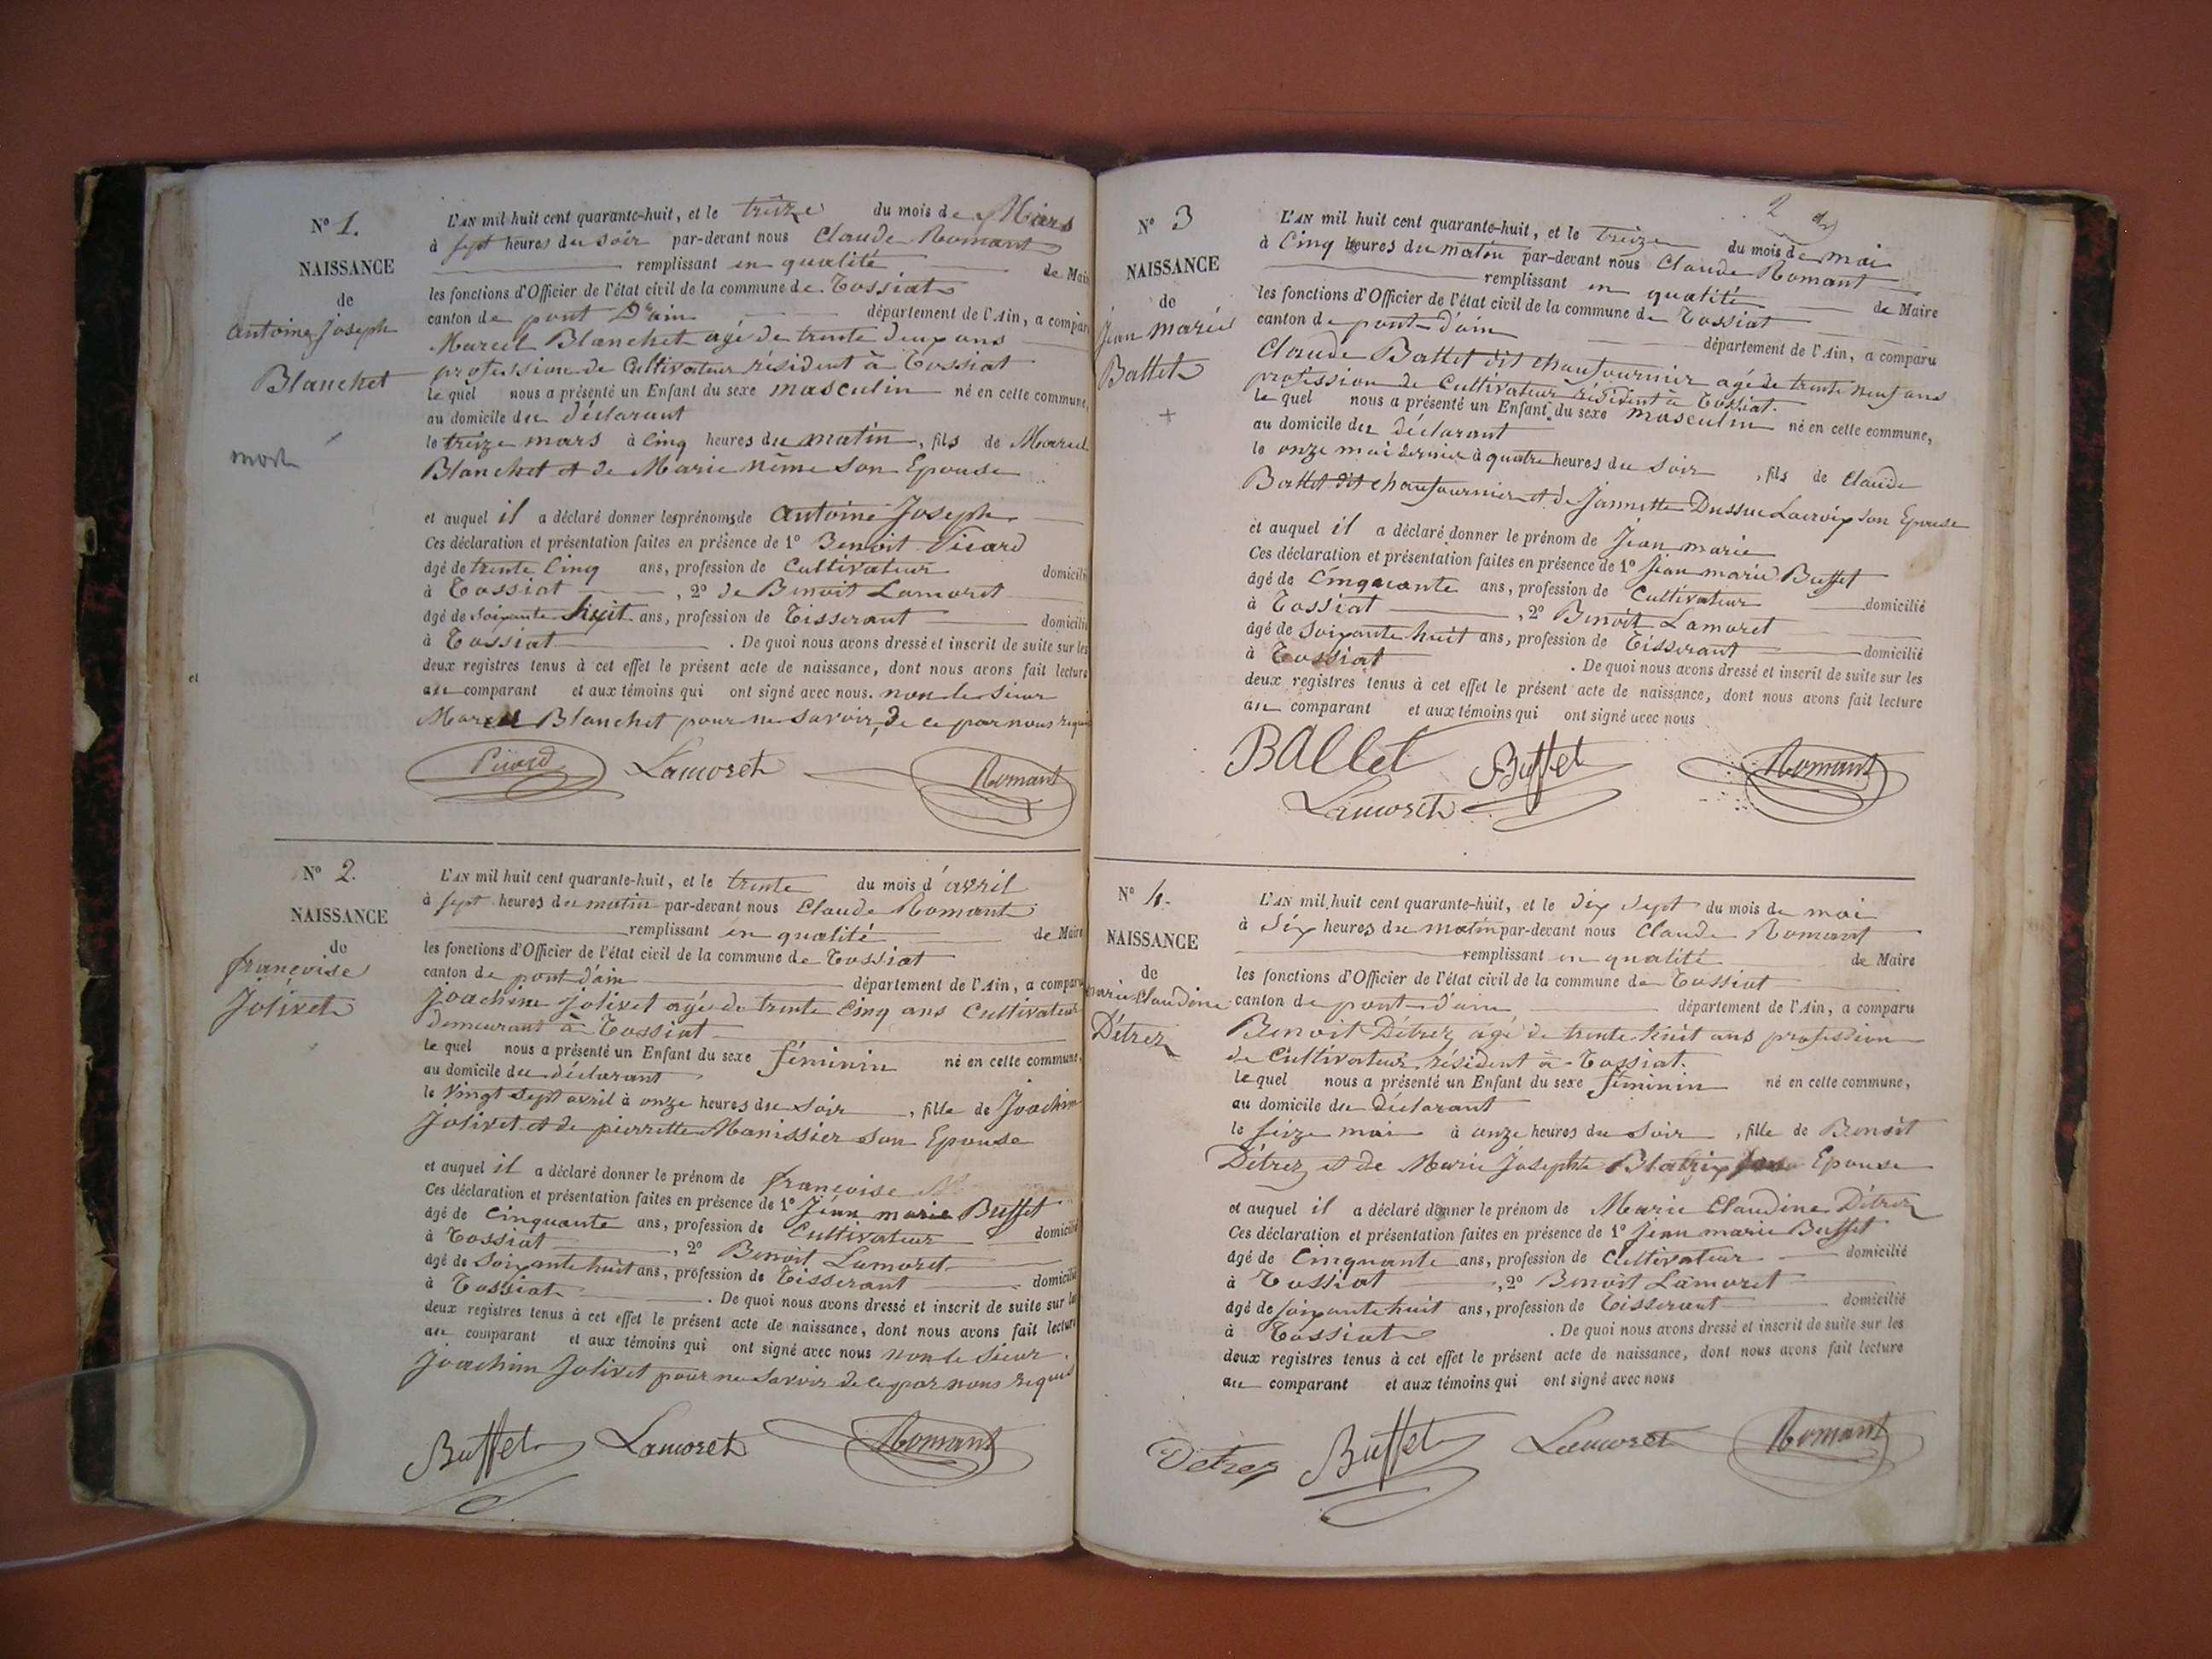 N° 1.
NAISSANCE
de
antoine Joseph
Blanchet
mort
L'AN mil huit cent quarante-huit, et le treize du mois de Mars
à sept heures du soir par-devant nous Claude Romant
remplissant en qualité de Mai
les fonctions d'Officier de l'état civil de la commune de Tossiat
canton de pont D'ain département de l'Ain, a compar
Marcel Blanchet agé de trente deux ans
profession de Cultivateur résident à Tossiat
le quel nous a présenté un Enfant du sexe masculin né en cette commune,
au domicile du déclarant
le treize mars à Cinq heures du matin, fils de Marcel
Blanchet et de Marie nême son Epouse
et auquel il a déclaré donner les prénoms de antoine Joseph
Ces déclaration et présentation faites en présence de 1° Benoit Picard
âgé de trente Cinq ans, profession de Cultivateur domicili
à Tossiat, 2° de Benoit Lamoret
âgé de soixante huit ans, profession de Tisserant domicili
à Tossiat. De quoi nous avons dressé et inscrit de suite sur les
deux registres tenus à cet effet le présent acte de naissance, dont nous avons fait lecture
au comparant et aux témoins qui ont signé avec nous. non le sieur
Marcel Blanchet pour ne savoir, de ce par nous requis
Picard Lamoret Romant
N° 2.
NAISSANCE
de
françoise
Jolivet
L'AN mil huit cent quarante-huit, et le trente du mois d'avril
à sept heures du matin par-devant nous Claude Romant
remplissant en qualité de Maire
les fonctions d'Officier de l'état civil de la commune de Tossiat
canton de pont d'ain département de l'Ain, a comparu
Joachim Jolivet agé de trente Cinq ans Cultivateur
demeurant à Tossiat
le quel nous a présenté un Enfant du sexe féminin né en cette commune,
au domicile du déclarant
le Vingt sept avril à onze heures du soir, fille de Joachim
Jolivet et de pierrette Manissier son Epouse
et auquel il a déclaré donner le prénom de françoise
Ces déclaration et présentation faites en présence de 1° Jean marie Buffet
âgé de Cinquante ans, profession de Cultivateur domicilié
à Tossiat, 2° Benoit Lamoret
âgé de Soixante huit ans, profession de Tisserant domicilié
à Tossiat. De quoi nous avons dressé et inscrit de suite sur les
deux registres tenus à cet effet le présent acte de naissance, dont nous avons fait lecture
au comparant et aux témoins qui ont signé avec nous non le Sieur
Joachim Jolivet pour ne savoir de ce par nous requis
Buffet Lamoret Romant
2
N° 3
NAISSANCE
de
Jean marie
Ballet
+
L'AN mil huit cent quarante-huit, et le treize du mois de mai
à Cinq heures du matin par-devant nous Claude Romant
remplissant en qualité de Maire
les fonctions d'Officier de l'état civil de la commune de Tossiat
canton de pont d'ain département de l'Ain, a comparu
Claude Ballet dit chaufournier agé de trente neuf ans
profession de Cultivateur résident à Tossiat.
le quel nous a présenté un Enfant du sexe masculin né en cette commune,
au domicile du déclarant
le onze mai dernier à quatre heures du soir, fils de Claude
Ballet dit chaufournier et de Jannette Dussue Lacroix son Epouse
et auquel il a déclaré donner le prénom de Jean marie
Ces déclaration et présentation faites en présence de 1° Jean marie Buffet
âgé de Cinquante ans, profession de Cultivateur domicilié
à Tossiat, 2° Benoit Lamoret
âgé de soixante huit ans, profession de Tisserant domicilié
à Tossiat. De quoi nous avons dressé et inscrit de suite sur les
deux registres tenus à cet effet le présent acte de naissance, dont nous avons fait lecture
au comparant et aux témoins qui ont signé avec nous
BAllet Buffet Romant
Lamoret
N° 4.
NAISSANCE
de
marie Claudine
Détrez
L'AN mil huit cent quarante-huit, et le dix sept du mois de mai
à Six heures du matin par-devant nous Claude Romant
remplissant en qualité de Maire
les fonctions d'Officier de l'état civil de la commune de Tossiat
canton de pont d'ain département de l'Ain, a comparu
Benoit Détrez âgé de trente huit ans profession
de Cultivateur résident à Tossiat.
le quel nous a présenté un Enfant du sexe féminin né en cette commune,
au domicile du déclarant
le seize mai à onze heures du soir, fille de Benoit
Détrez et de Marie Josephte Blatrix son Epouse
et auquel il a déclaré donner le prénom de Marie Claudine Détrez
Ces déclaration et présentation faites en présence de 1° Jean marie Buffet
âgé de Cinquante ans, profession de Cultivateur domicilié
à Tossiat, 2° Benoit Lamoret
âgé de soixante huit ans, profession de Tisserant domicilié
à Tossiat. De quoi nous avons dressé et inscrit de suite sur les
deux registres tenus à cet effet le présent acte de naissance, dont nous avons fait lecture
au comparant et aux témoins qui ont signé avec nous
Detrez Buffet Lamoret Romant